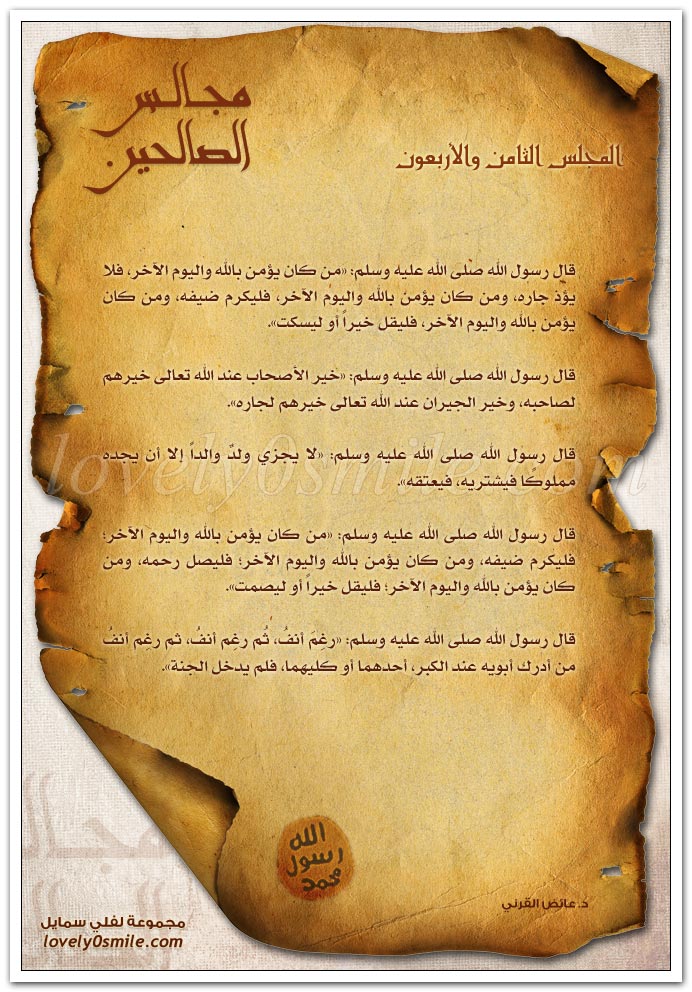 مجالس
الصالحين
المجلس الثامن والأربعون
قال رسول الله صلى الله عليه وسلم: «من كان يؤمن بالله واليوم الآخر، فلا
يؤذ جاره، ومن كان يؤمن بالله واليوم الآخر، فليكرم ضيفه، ومن كان
يؤمن بالله واليوم الآخر، فليقل خيراً أو ليسكت».
قال رسول الله صلى الله عليه وسلم: «خير الأصحاب عند الله تعالى خيرهم
لصاحبه، وخير الجيران عند الله تعالى خيرهم لجاره».
قال رسول الله صلى الله عليه وسلم: «لا يجزي ولدٌ والداً إلا أن يجده
مملوكًا فيشتريه، فيعتقه».
lovely0smile.com
قال رسول الله صلى الله عليه وسلم: «من كان يؤمن بالله واليوم الآخر؛
فليكرم ضيفه، ومن كان يؤمن بالله واليوم الآخر؛ فليصل رحمه، ومن
كان يؤمن بالله واليوم الآخر؛ فليقل خيراً أو ليصمت».
قال رسول الله صلى الله عليه وسلم: «رغِمَ أنفُ، ثُم رغِم أنفُ، ثم رغِم أنفُ
من أدرك أبويه عند الكبر، أحدهما أو كليهما، فلم يدخل الجنة».
الله
رسول
محمد
د.عائض القرني
مجموعة لفلي سمايل
lovely0smile.com